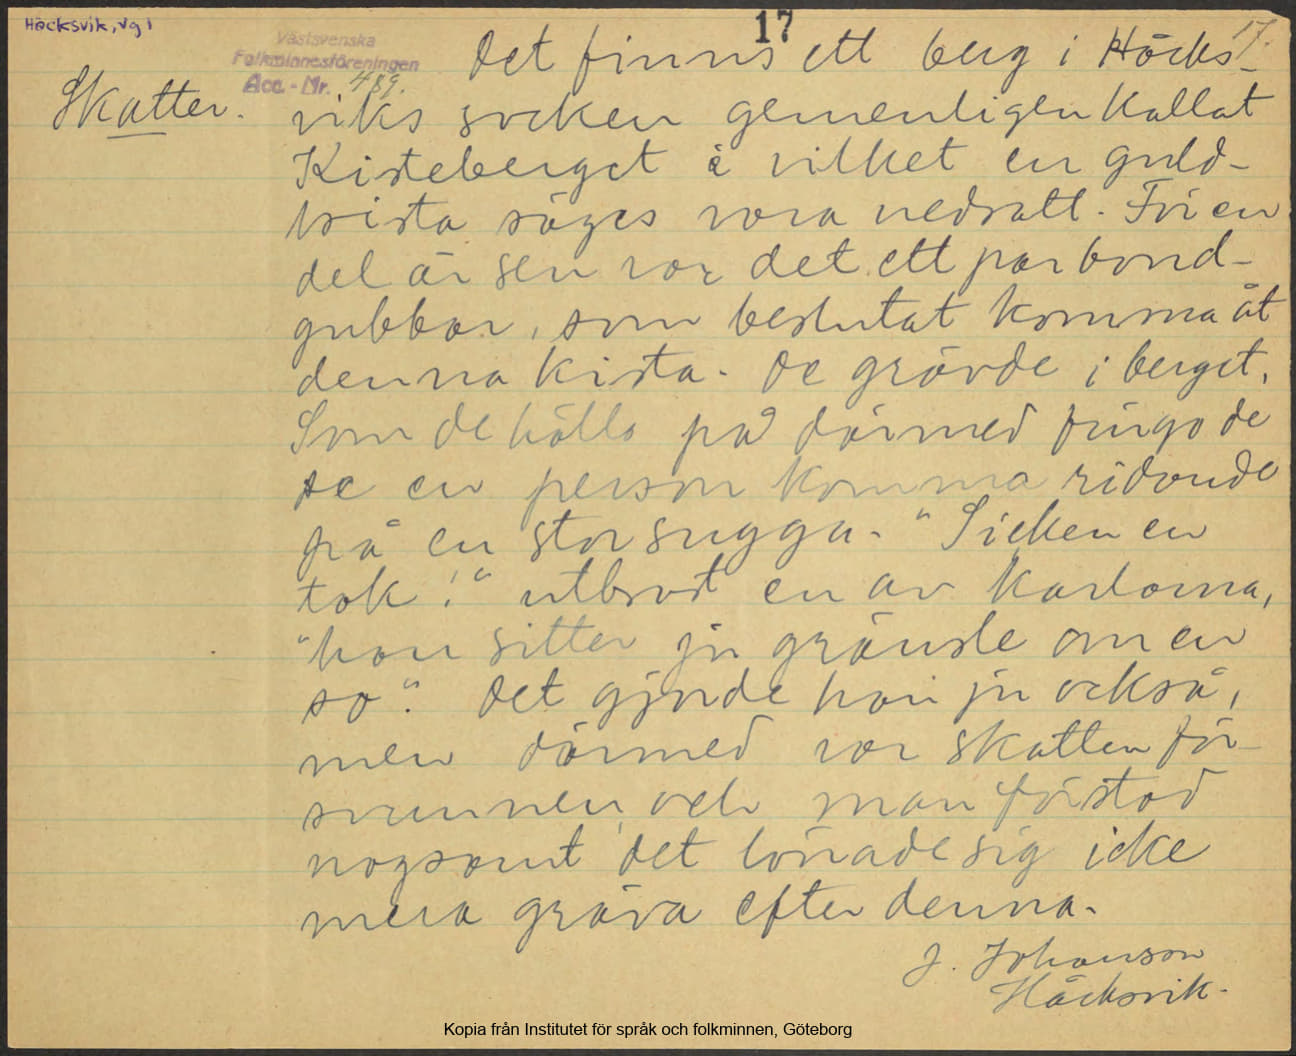 Häcksvik, Vg 1
17
17.
Västsvenska
Folkminnesföreningen
Acc.-Nr. 489.
Skatter.
Det finns ett berg i Häcks-
viks socken gemenligen kallat
Kisteberget i vilket en guld-
kista säges vara nedsatt. För en
del år sen var det ett par bond-
gubbar, som beslutat komma åt
denna kista. De grävde i berget.
Som de hålla på därmed fingo de
se en person komma ridande
på en stor sugga. "Sicken en
tok!" utbrast en av karlarna,
"han sitter ju gränsle om en
so". Det gjorde han ju också,
men därmed var skatten för-
svunnen och man förstod
nogsamt det lönade sig icke
mera gräva efter denna.
J. Johanson
Häcksvik.
Kopia från Institutet för språk och folkminnen, Göteborg